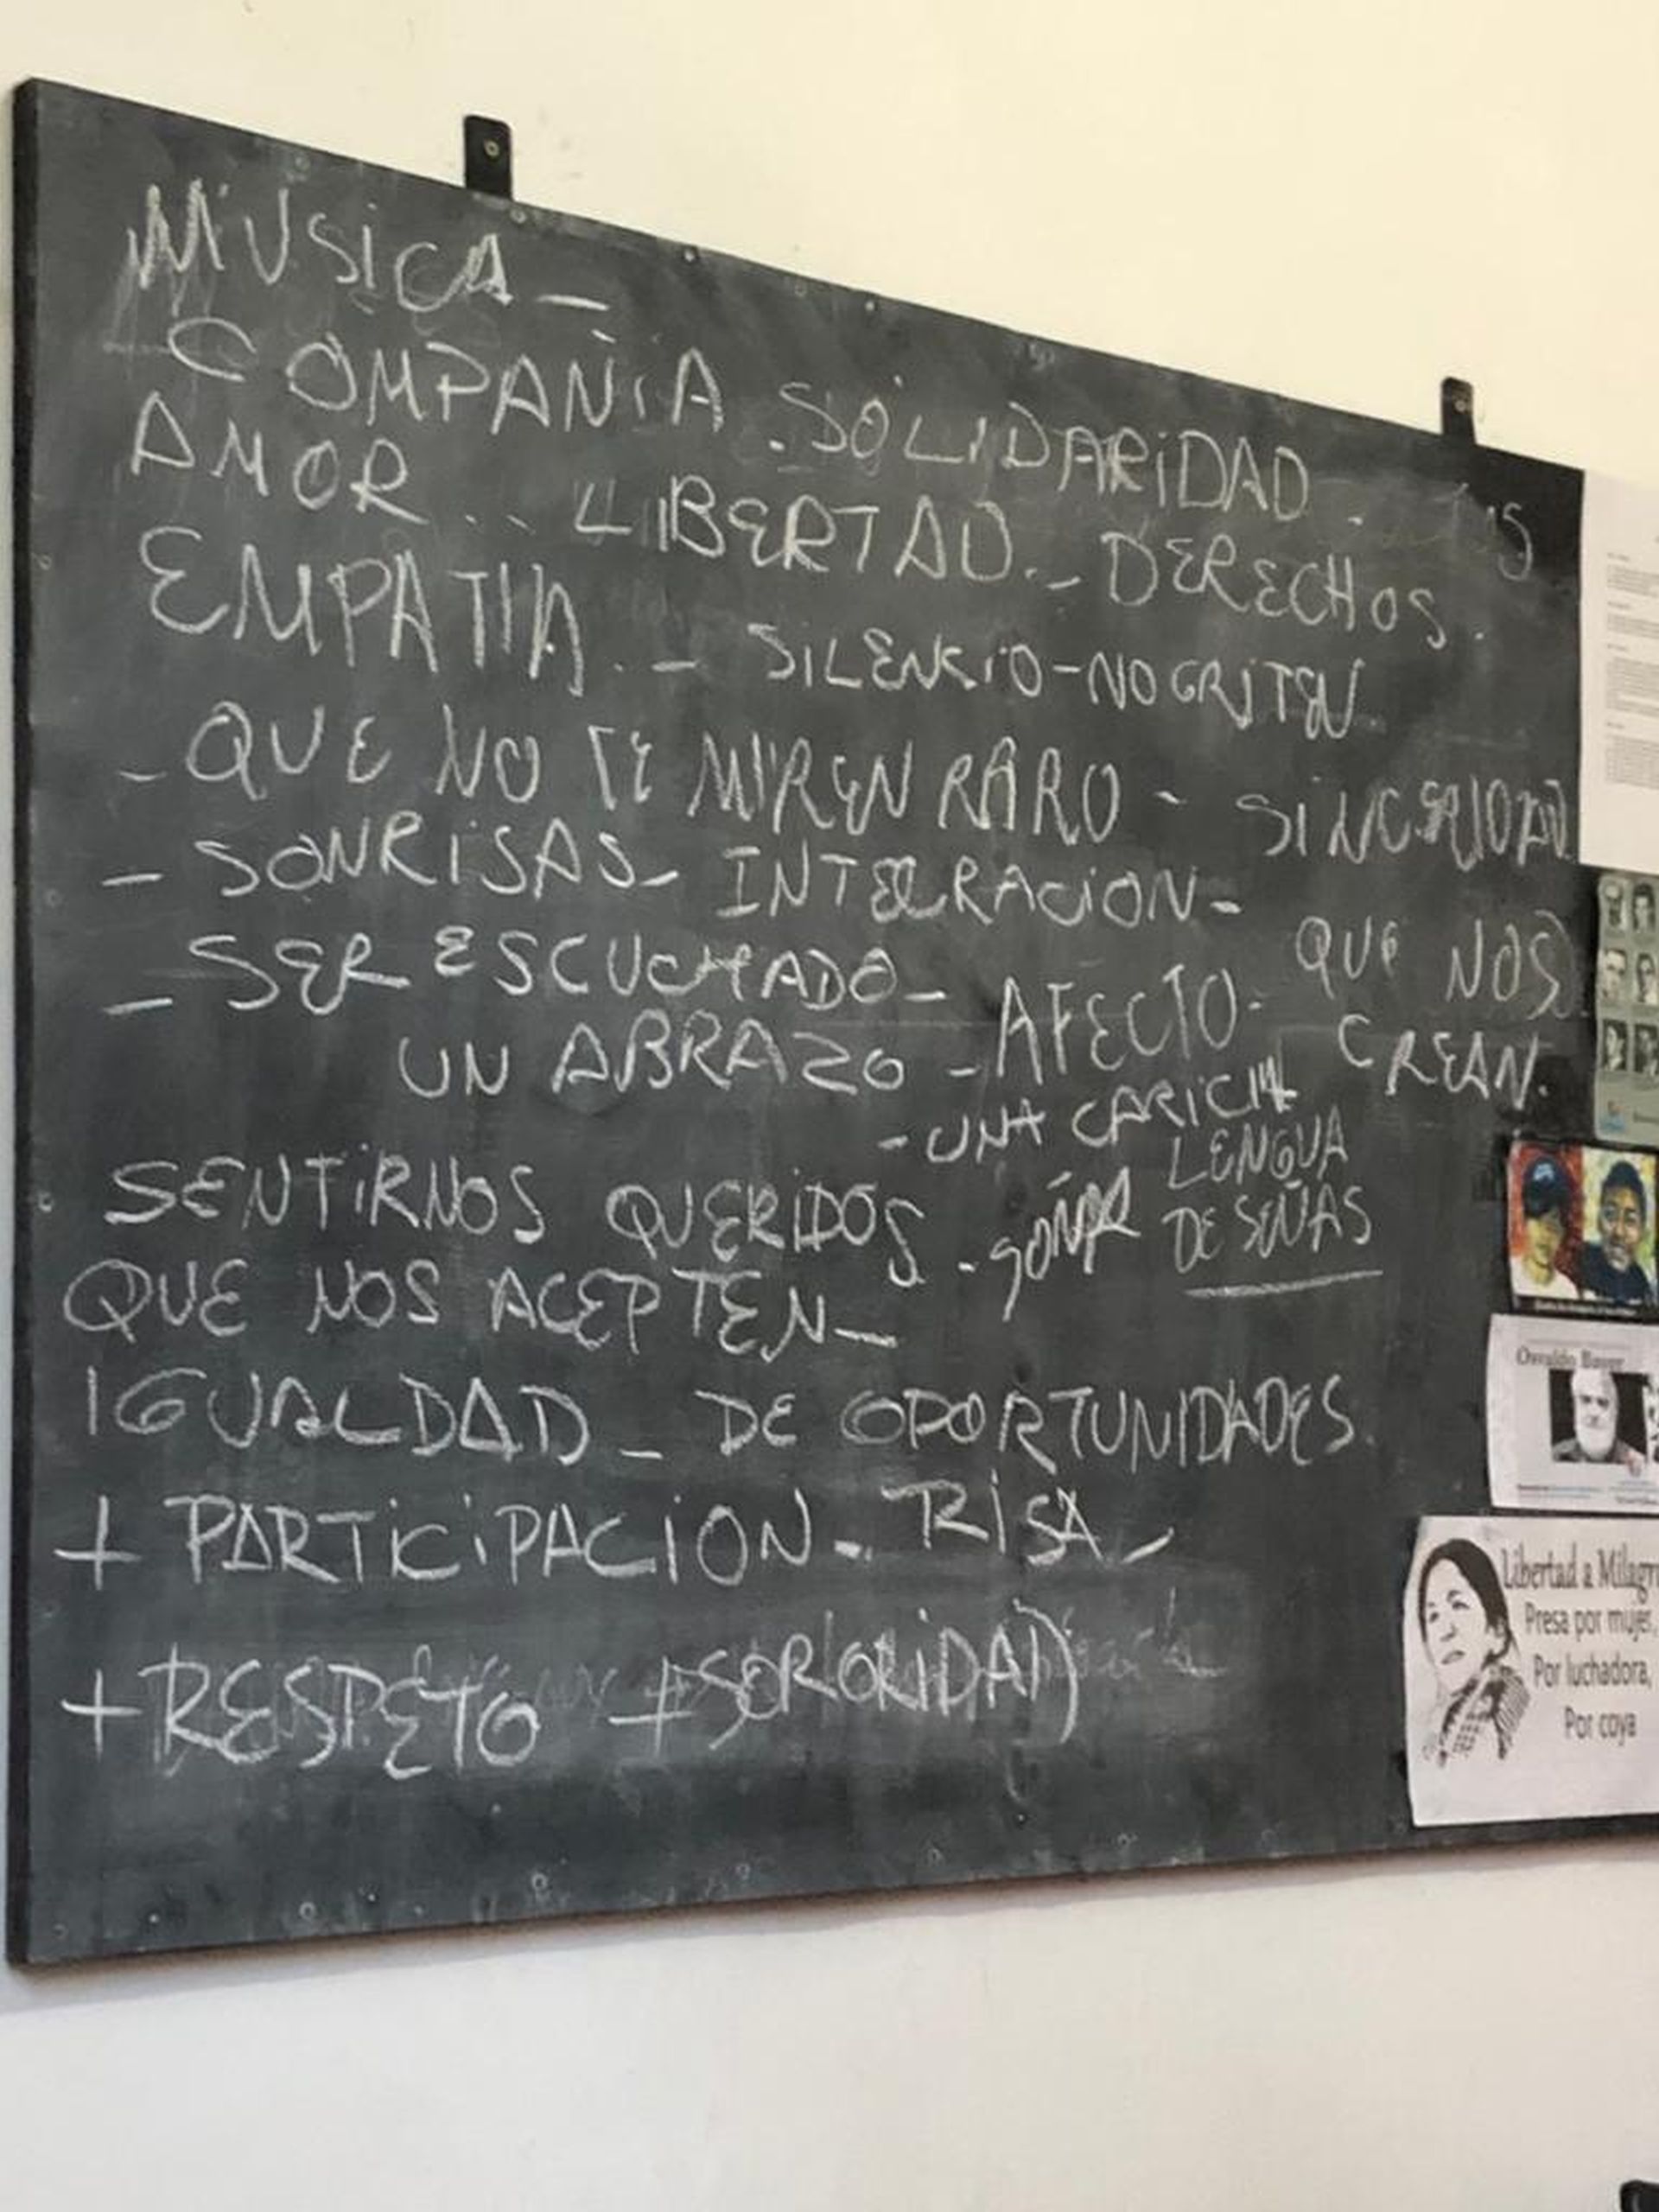 MUSICA_
COMPAÑIA . SOLIDARIDAD .
AMOR .. LIBERTAD._ DERECHOS.
EMPATIA . _ SILENCIO - NO GRITEN
- QUE NO TE MIREN RARO - SINCERIDAD
- SONRISAS - INTEGRACION -
- SER ESCUCHADO - AFECTO - QUE NOS
UN ABRAZO - CREAN.
- UNA CARICIA
LENGUA
SENTIRNOS QUERIDOS . SOÑAR DE SEÑAS
QUE NOS ACEPTEN_
IGUALDAD _ DE OPORTUNIDADES.
+ PARTICIPACION - RISA -
+ RESPETO + SORORIDAD
Osvaldo Bayer
Libertad a Milagr
Presa por mujer,
Por luchadora,
Por coya